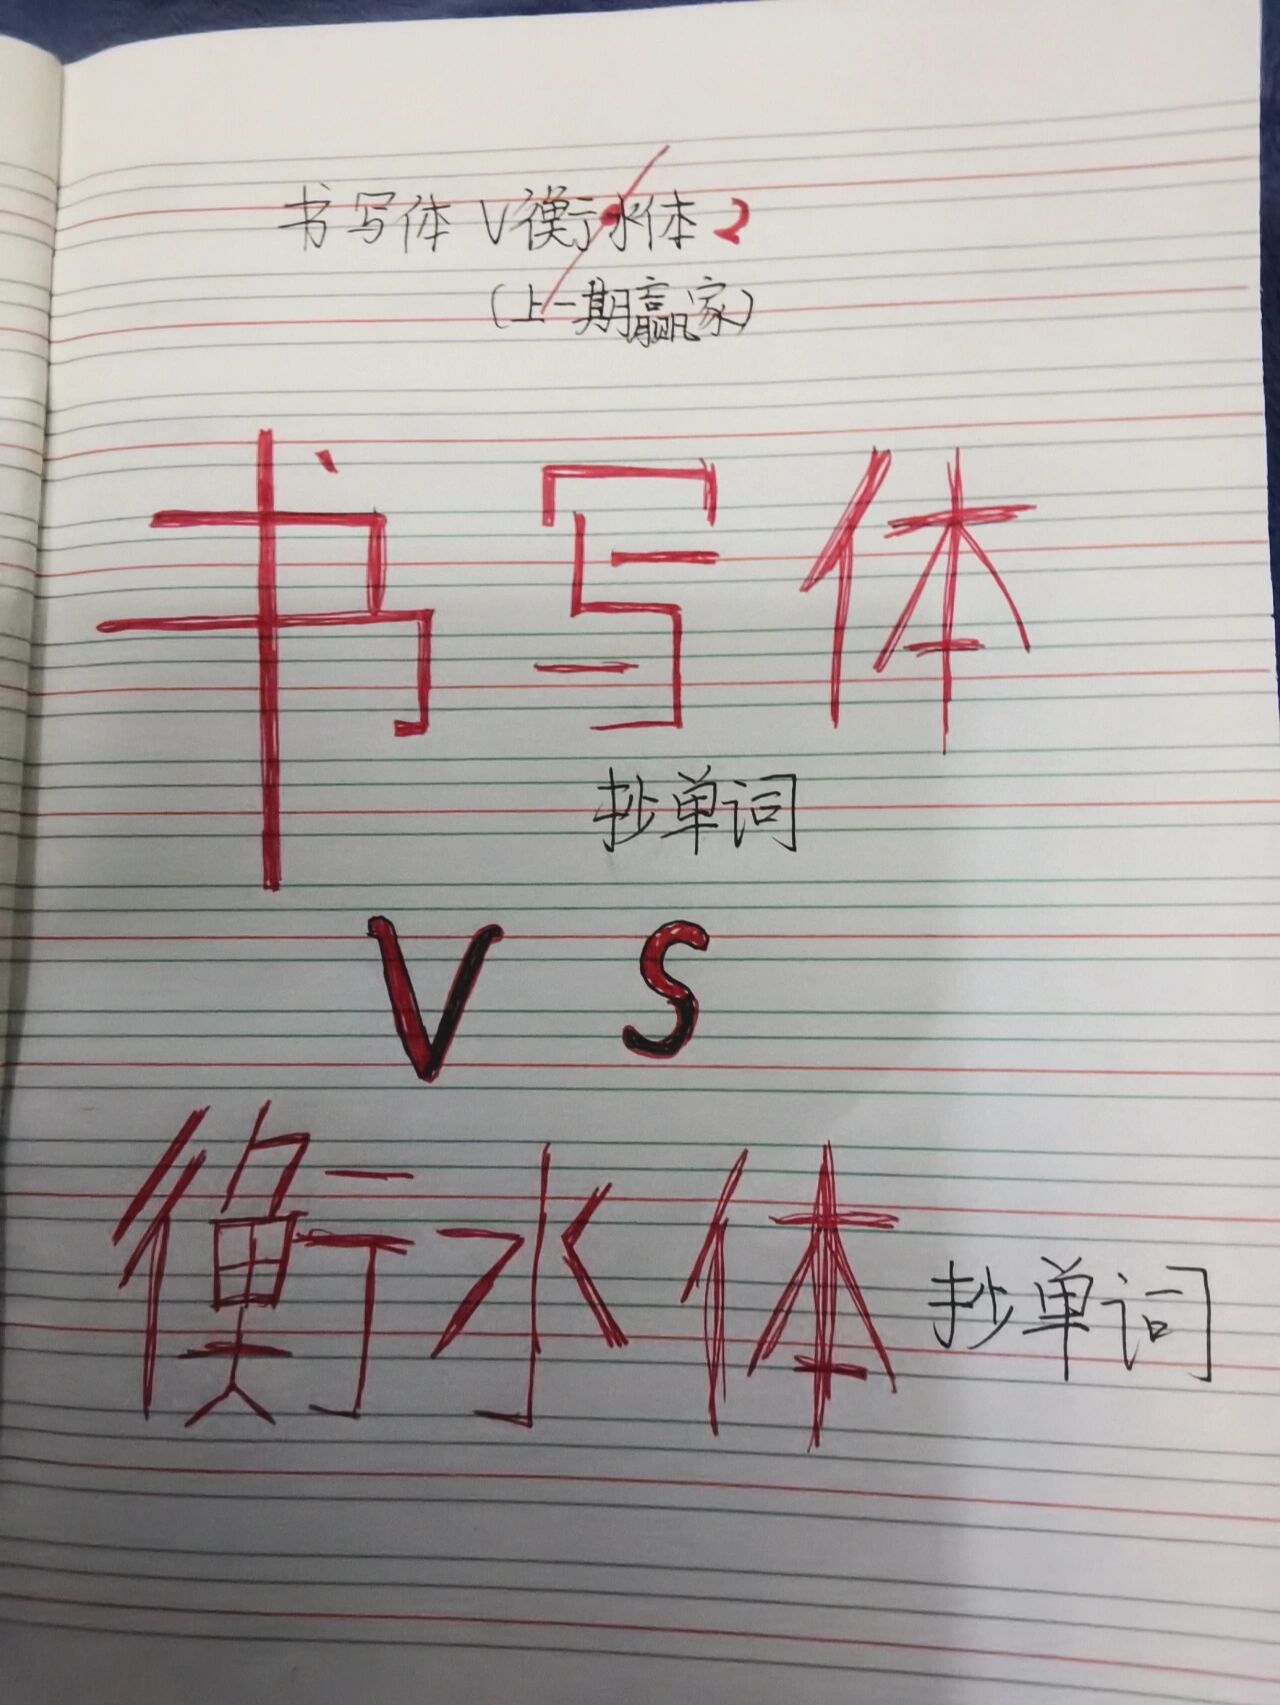 书写体 V衡水体2
(上一期赢家)
书写体
抄单词
V S
衡水体 抄单词